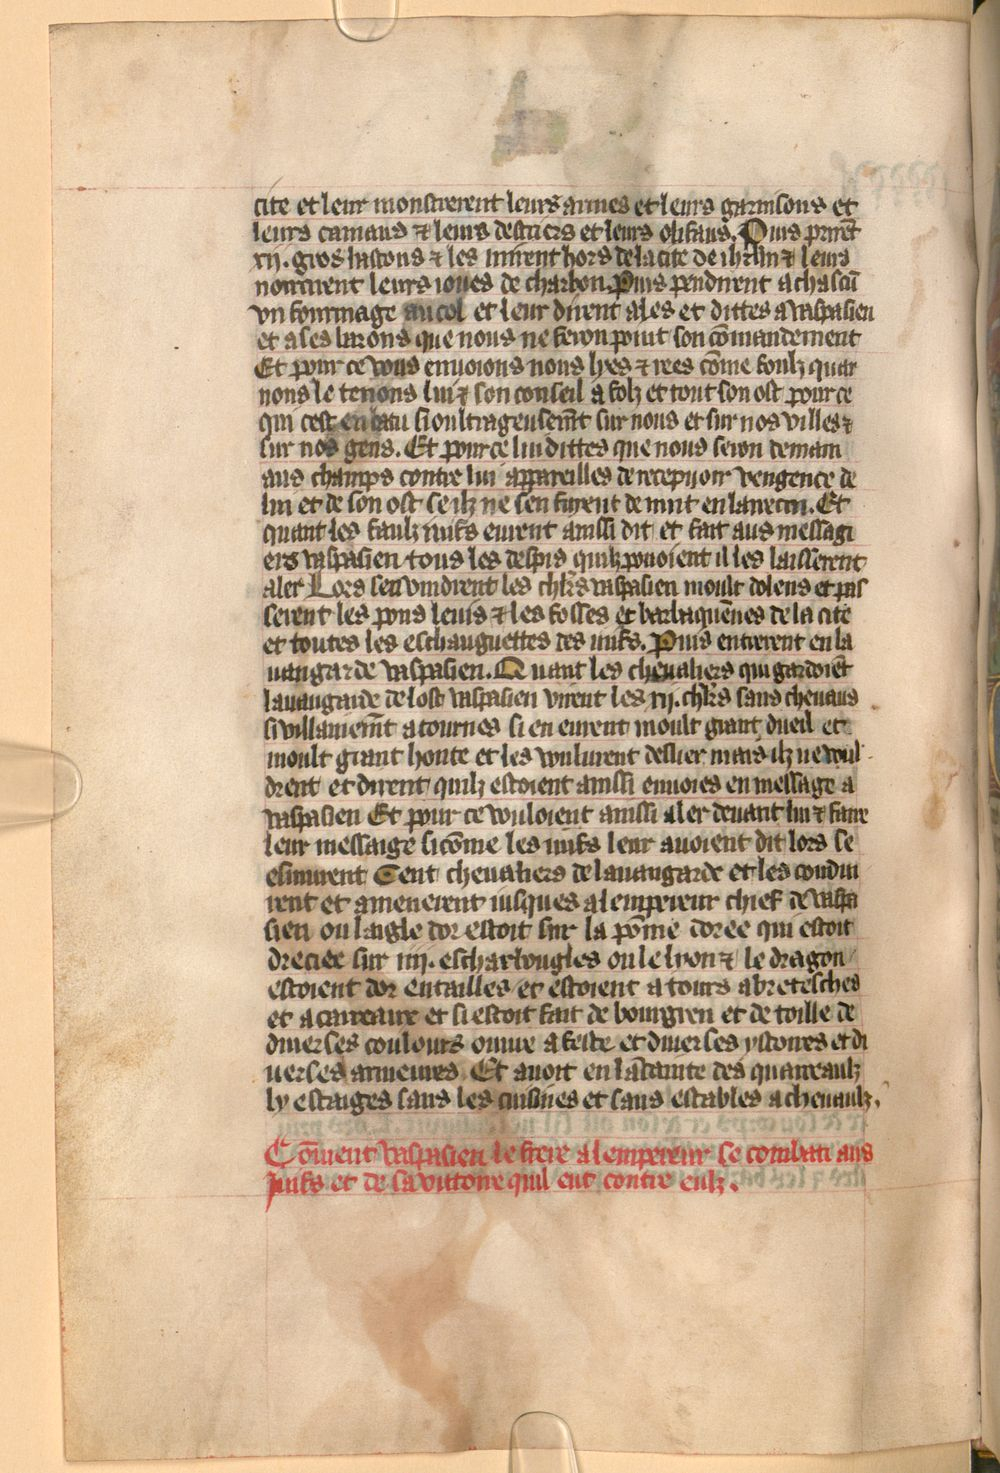 cite et leur monstrerent leurs armes et leurs garnisons et
leurs camaus ⁊ leurs destriers et leurs olifans. Puis prirẽt
xij. gros bastons ⁊ les mirent hors de la cite de ihrl̃m ⁊ leurs
noircirent leurs ioues de charbon. Puis pendirent a chascũ
vn fourmage au col et leur dirent ales et dittes a vaspasien
et a ses barons que nous ne feron point son cõmandement
Et pour ce vous enuoions nous lyes ⁊ rees cõme foulz quar
nous le tenons lui ⁊ son conseil a folz et tout son ost pour ce
qui cest enbatu si oultrageusemẽt sur nous et sur nos villes ⁊
sur nos gens. Et pour ce lui dittes que nous seron demain
aus champs contre lui appareilles de recepuoir vengence de
lui et de son ost se ilz ne sen fuient de nuit en larrecin. Et
quant les faulz iuifs eurent ainssi dit et fait aus messagi
ers vaspasien tous les despis quilz pouoient il les laisserent
aler Lors sen vindrent les chl̃rs vaspasien moult dolens et pas
serent les pons leuis ⁊ les fosses et barbaquẽnes de la cite
et toutes les eschauguettes des iuifs. Puis entrerent en la
uangarde vaspasien. Quant les cheualiers qui gardoiẽt
lauangarde de lost vaspasien virent les xij. chl̃rs sans cheuaus
si villainemẽt atournes si en eurent moult grant dueil et
moult grant honte et les voulurent deslier mais ilz ne voul
drent et dirent quilz estoient ainssi enuoies en message a
vaspasien Et pour ce vouloient ainssi aler deuant lui ⁊ faire
leur messaige si cõme les iuifs leur auoient dit lors se
esmurent Cent cheualiers de lauangarde et les condui
rent et amenerent iusques a lempereur chief de vaspa
sien ou laigle dor estoit sur la põme doree qui estoit
dreciee sur iiij. escharbougles ou le lyon ⁊ le dragon
estoient dor entailles et estoient a tours a bretesches
et a carreaux et si estoit fait de bougren et de toille de
diuerses coulours ouure a beste et diuerses ystoires et di
uerses armeures. Et auoit en
ly estaiges sans les cuisines et sans estables a cheuaulz.
Cõment vaspasien le frere a lempereur se combati aus
Juifs et de sa vittoire quil eut contre eulz.